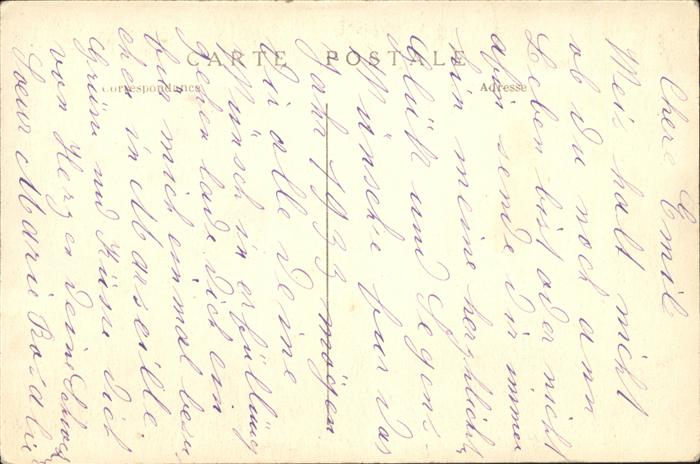 CARTE POSTALE
Correspondance
Adresse
Chere Emil
Weis halt nicht
ob Du noch ann
Leben bist oder nicht
aber sende Dir immer
hin meine herzlichst
Glück und Segens-
Wünsche fur das
Jahr 1933 mögen
Dir alle deine
Wünsch in erfüllung
gehen lade Dich ein
fur mich einmal besu
chen in Marseille.
Grüsse und Küsse Dich
von Herzen deine Schwest
Soeur Marie Rosalie